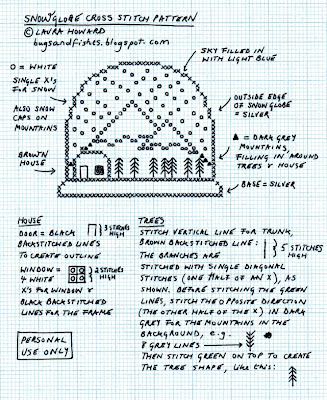 SNOWGLOBE CROSS STITCH PATTERN
© LAURA HOWARD
bugsandfishes.blogspot.com
SKY FILLED IN
WITH LIGHT BLUE
O = WHITE
SINGLE X's
FOR SNOW
ALSO SNOW
CAPS ON
MOUNTAINS
BROWN
HOUSE
OUTSIDE EDGE
OF SNOWGLOBE
= SILVER
▲ = DARK GREY
MOUNTAINS,
FILLING IN AROUND
TREES & HOUSE
BASE = SILVER
HOUSE
DOOR = BLACK
BACKSTITCHED LINES
TO CREATE OUTLINE
3 STITCHES
HIGH
WINDOW =
4 WHITE
X's FOR WINDOW &
BLACK BACKSTITCHED
LINES FOR THE FRAME
2 STITCHES
HIGH
PERSONAL
USE ONLY
TREES
STITCH VERTICAL LINE FOR TRUNK,
BROWN BACKSTITCHED LINE:
5 STITCHES
HIGH
THE BRANCHES ARE
STITCHED WITH SINGLE DIAGONAL
STITCHES (ONE HALF OF AN X), AS
SHOWN. BEFORE STITCHING THE GREEN
LINES, STITCH THE OPPOSITE DIRECTION
(THE OTHER HALF OF THE X) IN DARK
GREY FOR THE MOUNTAINS IN THE
BACKGROUND, e.g.
8 GREY LINES
THEN STITCH GREEN ON TOP TO CREATE
THE TREE SHAPE, LIKE this: